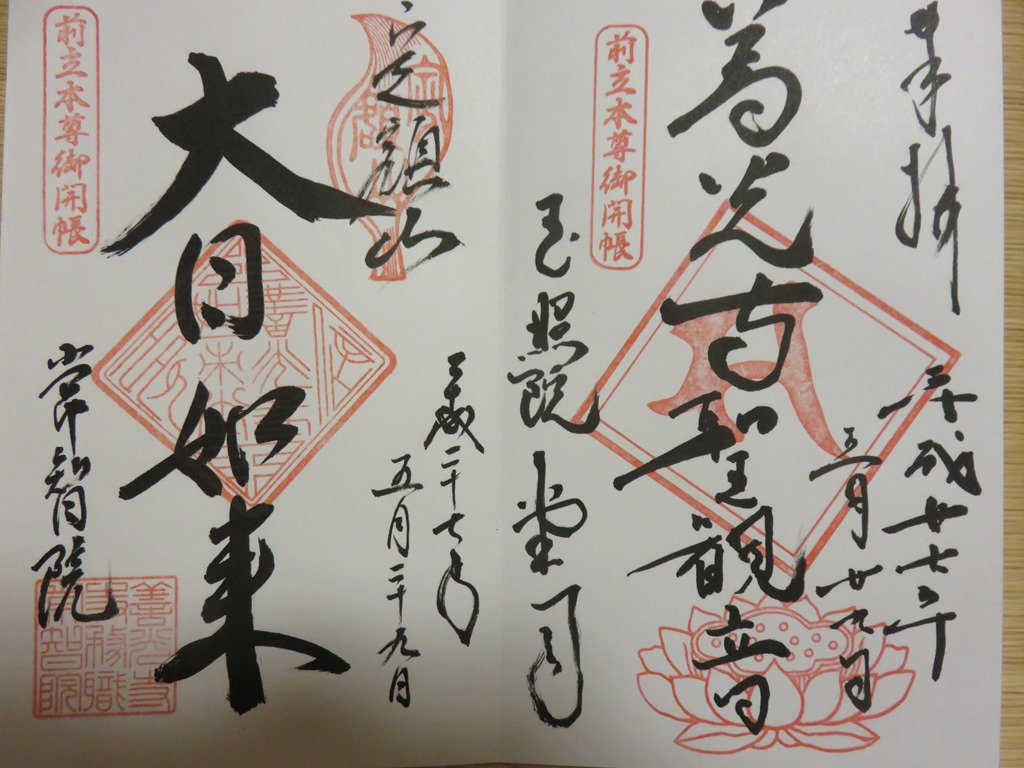 奉拝
平成廿七年
五月廿九日
善光寺聖観立日
前立本尊御開帳
玉照院 堂司
平成二十七年
五月二十九日
定額山
大日如来
前立本尊御開帳
常智院
善光寺
常智院